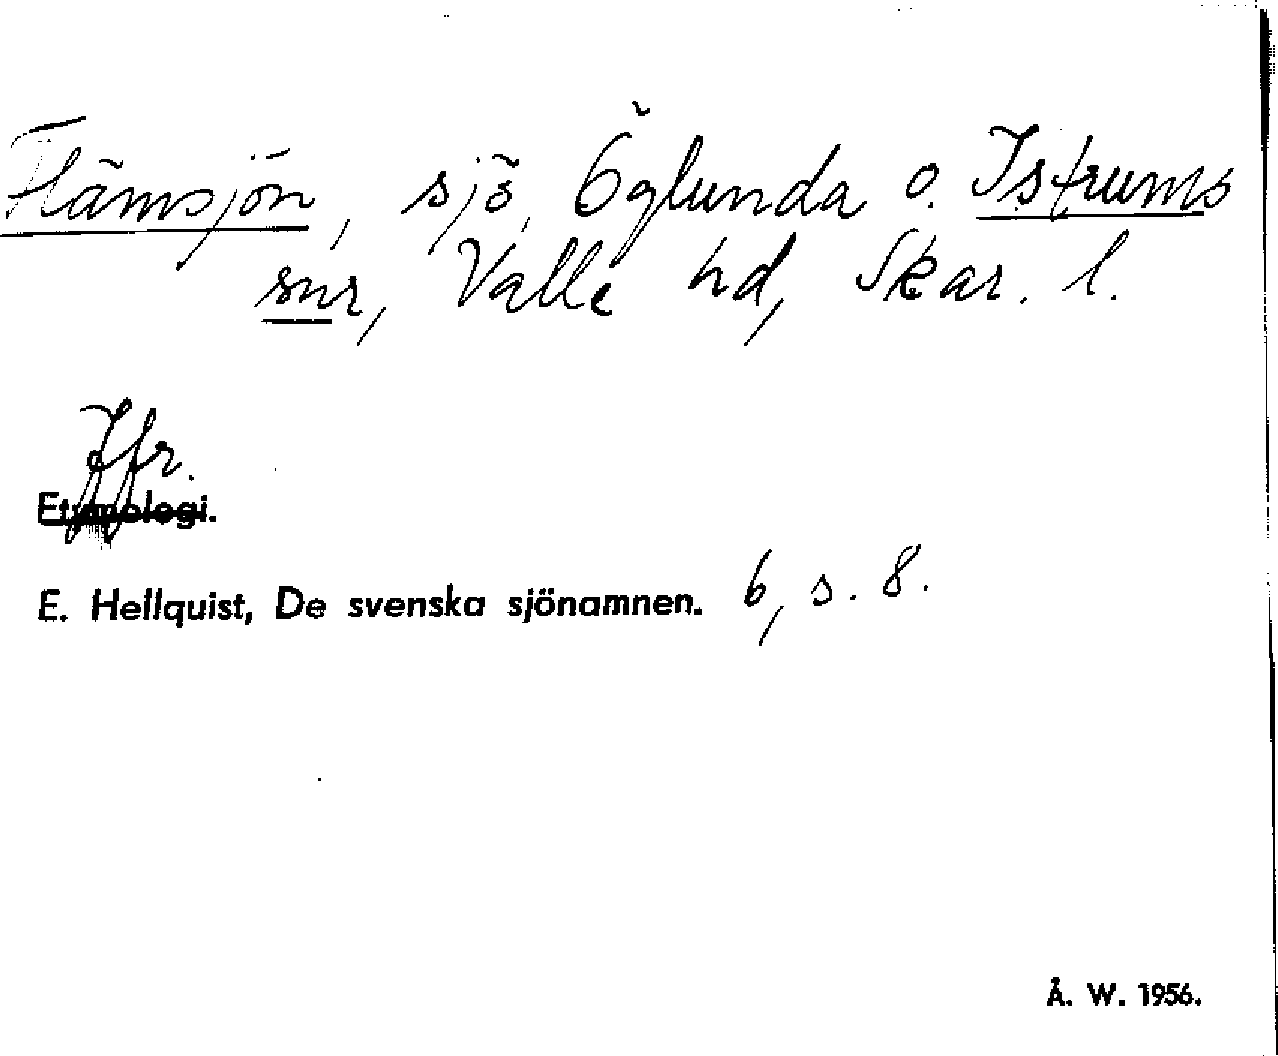 Flämsjön, sjö, Öglunda o. Istrums
snr, Valle hd, Skar. l.
Jfr.
Etymologi.
E. Hellquist, De svenska sjönamnen. 6, s. 8.
Å. W. 1956.